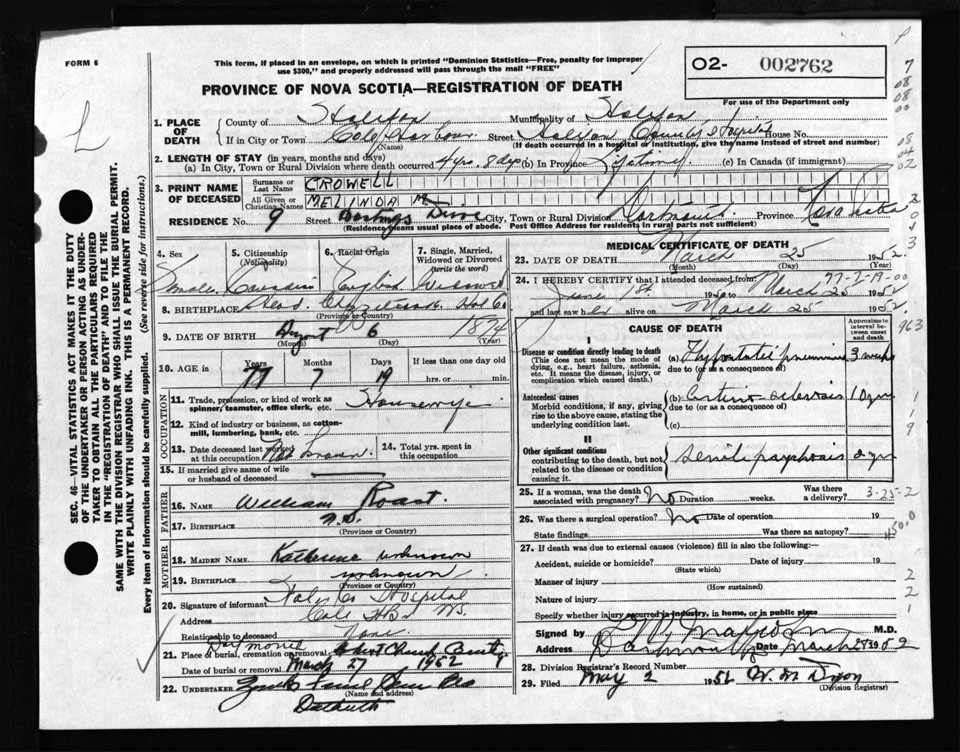 FORM 6
This form, if placed in an envelope, on which is printed "Dominion Statistics—Free, penalty for improper
use $300," and properly addressed will pass through the mail "FREE"
O2- 002762
For use of the Department only
PROVINCE OF NOVA SCOTIA—REGISTRATION OF DEATH
L
SEC. 46 VITAL STATISTICS ACT MAKES IT THE DUTY
OF THE UNDERTAKER OR PERSON ACTING AS UNDER-
TAKER TO OBTAIN ALL THE PARTICULARS REQUIRED
IN THE "REGISTRATION OF DEATH" AND TO FILE THE
SAME WITH THE DIVISION REGISTRAR WHO SHALL ISSUE THE BURIAL PERMIT.
WRITE PLAINLY WITH UNFADING INK. THIS IS A PERMANENT RECORD.
Every item of Information should be carefully supplied. (See reverse side for instructions.)
1. PLACE OF DEATH
County of Halifax Municipality of Halifax
If in City or Town Cole Harbour Street Halifax County Hospital House No.
(Name) (If death occurred in a hospital or institution, give the name instead of street and number)
2. LENGTH OF STAY (in years, months and days)
(a) In City, Town or Rural Division where death occurred 4 yrs. 8 dys (b) In Province Lifetime (c) In Canada (if immigrant)
3. PRINT NAME OF DECEASED
Surname or Last Name CROWELL
All Given or Christian Names MELINDA M
RESIDENCE No. 9 Street Drive City, Town or Rural Division Dartmouth Province Nova Scotia
(Residency means usual place of abode. Post Office Address for residents in rural parts not sufficient)
4. Sex
5. Citizenship (Nationality)
6. Racial Origin
7. Single, Married, Widowed or Divorced (write the word)
Female Canadian English Widowed
8. BIRTHPLACE Head Chezzetcook Hfx Co
(Province or Country)
9. DATE OF BIRTH August 6 1874
(Month) (Day) (Year)
10. AGE in
Years Months Days If less than one day old
77 7 19 hrs. or min.
OCCUPATION
11. Trade, profession, or kind of work as
spinner, teamster, office clerk, etc. Housewife
12. Kind of industry or business, as cotton-
mill, lumbering, bank, etc.
13. Date deceased last worked
at this occupation Not Known
14. Total yrs. spent in
this occupation
15. If married give name of wife
or husband of deceased
FATHER
16. NAME William Roast
17. BIRTHPLACE N.S.
(Province or Country)
MOTHER
18. MAIDEN NAME. Katherine unknown
19. BIRTHPLACE unknown
(Province or Country)
20. Signature of informant Halifax Co Hospital
Address Cole Hbr N.S.
Relationship to deceased None
21. Place of burial, cremation or removal Christ Church
Date of burial or removal March 27 1952
22. UNDERTAKER
(Name and address)
MEDICAL CERTIFICATE OF DEATH
23. DATE OF DEATH March 25 1952.
(Month) (Day) (Year)
24. I HEREBY CERTIFY that I attended deceased from
June 1st 19 to March 25 1952
and last saw her alive on March 25 1952
77-7-19-00
CAUSE OF DEATH
Approximate interval between onset and death
I
Disease or condition directly leading to death
(This does not mean the mode of dying, e.g., heart failure, asthenia, etc. It means the disease, injury, or complication which caused death.)
(a) Hypostatic pneumonia 3 weeks
due to (or as a consequence of)
Antecedent causes
Morbid conditions, if any, giving rise to the above cause, stating the underlying condition last.
(b) Arterio-sclerosis 10 yrs
due to (or as a consequence of)
(c)
II
Other significant conditions
contributing to the death, but not related to the disease or condition causing it.
Senile psychosis
25. If a woman, was the death
associated with pregnancy? No Duration weeks. Was there
a delivery?
3-25-2
26. Was there a surgical operation? No Date of operation 19
State findings Was there an autopsy?
27. If death was due to external causes (violence) fill in also the following:—
Accident, suicide or homicide? Date of injury 19
(State which)
Manner of injury
(How sustained)
Nature of injury
Specify whether injury occurred in industry, in home, or in public place
Signed by M.D.
Address Dartmouth Date March 1952
28. Division Registrar's Record Number
29. Filed May 2 195
(Division Registrar)